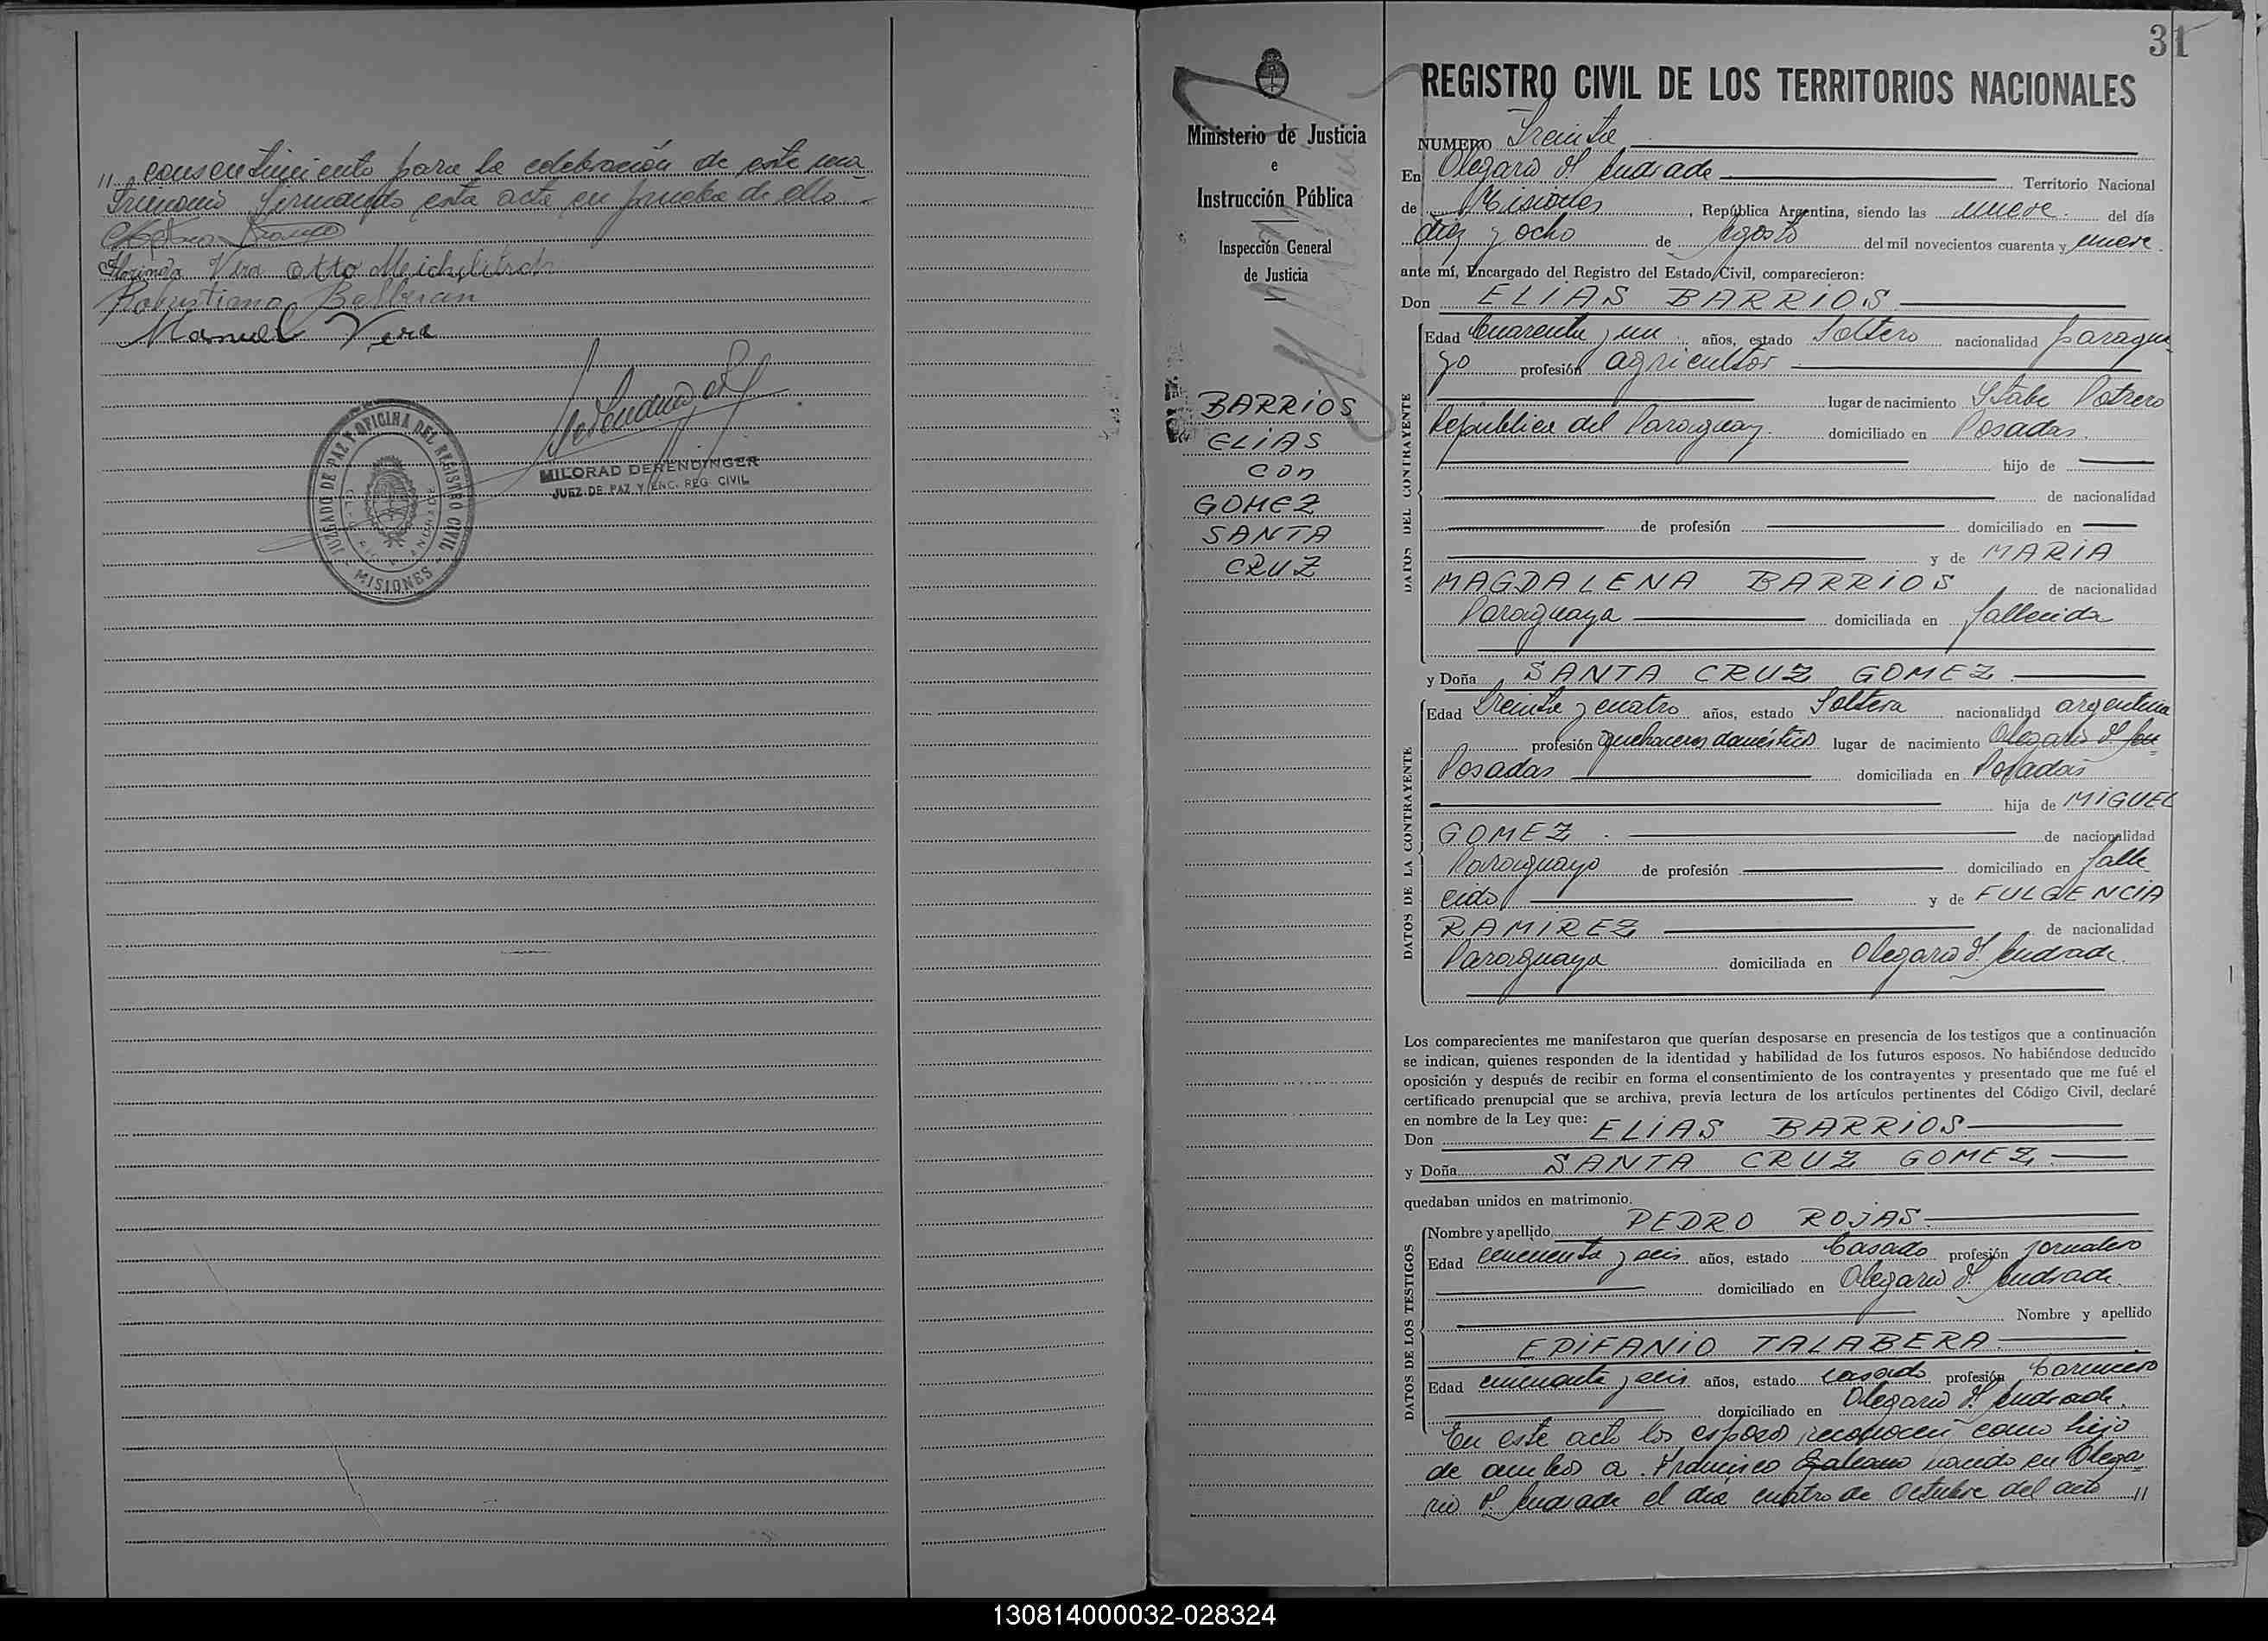 " consentimiento para la celebración de este ma-
trimonio firmando esta acta en prueba de ello -
Florinda Vera Otto
Robustiana Balberan
Manuel Vera
JUZGADO DE PAZ Y OFICINA DEL REGISTRO CIVIL
MISIONES
MILORAD DERENDINGER
JUEZ DE PAZ Y ENC. REG. CIVIL
31
Ministerio de Justicia
e
Instrucción Pública
Inspección General
de Justicia
BARRIOS
ELIAS
CON
GOMEZ
SANTA
CRUZ
REGISTRO CIVIL DE LOS TERRITORIOS NACIONALES
NUMERO Treinta
En Olegario V Andrade Territorio Nacional
de Misiones, República Argentina, siendo las nueve del día
diez y ocho de Agosto del mil novecientos cuarenta y nueve.
ante mí, Encargado del Registro del Estado Civil, comparecieron:
Don ELIAS BARRIOS
DATOS DEL CONTRAYENTE
Edad Cuarenta y un años, estado Soltero nacionalidad paragua-
yo profesión agricultor
lugar de nacimiento Potrero
República del Paraguay. domiciliado en Posadas.
hijo de
de nacionalidad
de profesión domiciliado en
y de MARIA
MAGDALENA BARRIOS de nacionalidad
Paraguaya domiciliada en fallecida
y Doña SANTA CRUZ GOMEZ
DATOS DE LA CONTRAYENTE
Edad Treinta y cuatro años, estado Soltera nacionalidad argentina
profesión quehaceres domésticos lugar de nacimiento Olegario V. An=
Posadas domiciliada en Posadas
hija de MIGUEL
GOMEZ. de nacionalidad
Paraguayo de profesión domiciliado en falle
cido y de FULGENCIA
RAMIREZ de nacionalidad
Paraguaya domiciliada en Olegario V. Andrade.
Los comparecientes me manifestaron que querían desposarse en presencia de los testigos que a continuación
se indican, quienes responden de la identidad y habilidad de los futuros esposos. No habiéndose deducido
oposición y después de recibir en forma el consentimiento de los contrayentes y presentado que me fué el
certificado prenupcial que se archiva, previa lectura de los artículos pertinentes del Código Civil, declaré
en nombre de la Ley que:
Don ELIAS BARRIOS
y Doña SANTA CRUZ GOMEZ.
quedaban unidos en matrimonio.
DATOS DE LOS TESTIGOS
Nombre y apellido PEDRO ROJAS
Edad cincuenta y seis años, estado Casado profesión jornalero
domiciliado en Olegario V. Andrade.
Nombre y apellido
EPIFANIO TALABERA
Edad cincuenta y seis años, estado casado profesión Carnicero
domiciliado en Olegario V. Andrade.
En este acto los esposos reconocen como hijo
de ambos a Francisco nacido en Olega-
rio V. Andrade el día cuatro de Octubre del año "
130814000032-028324